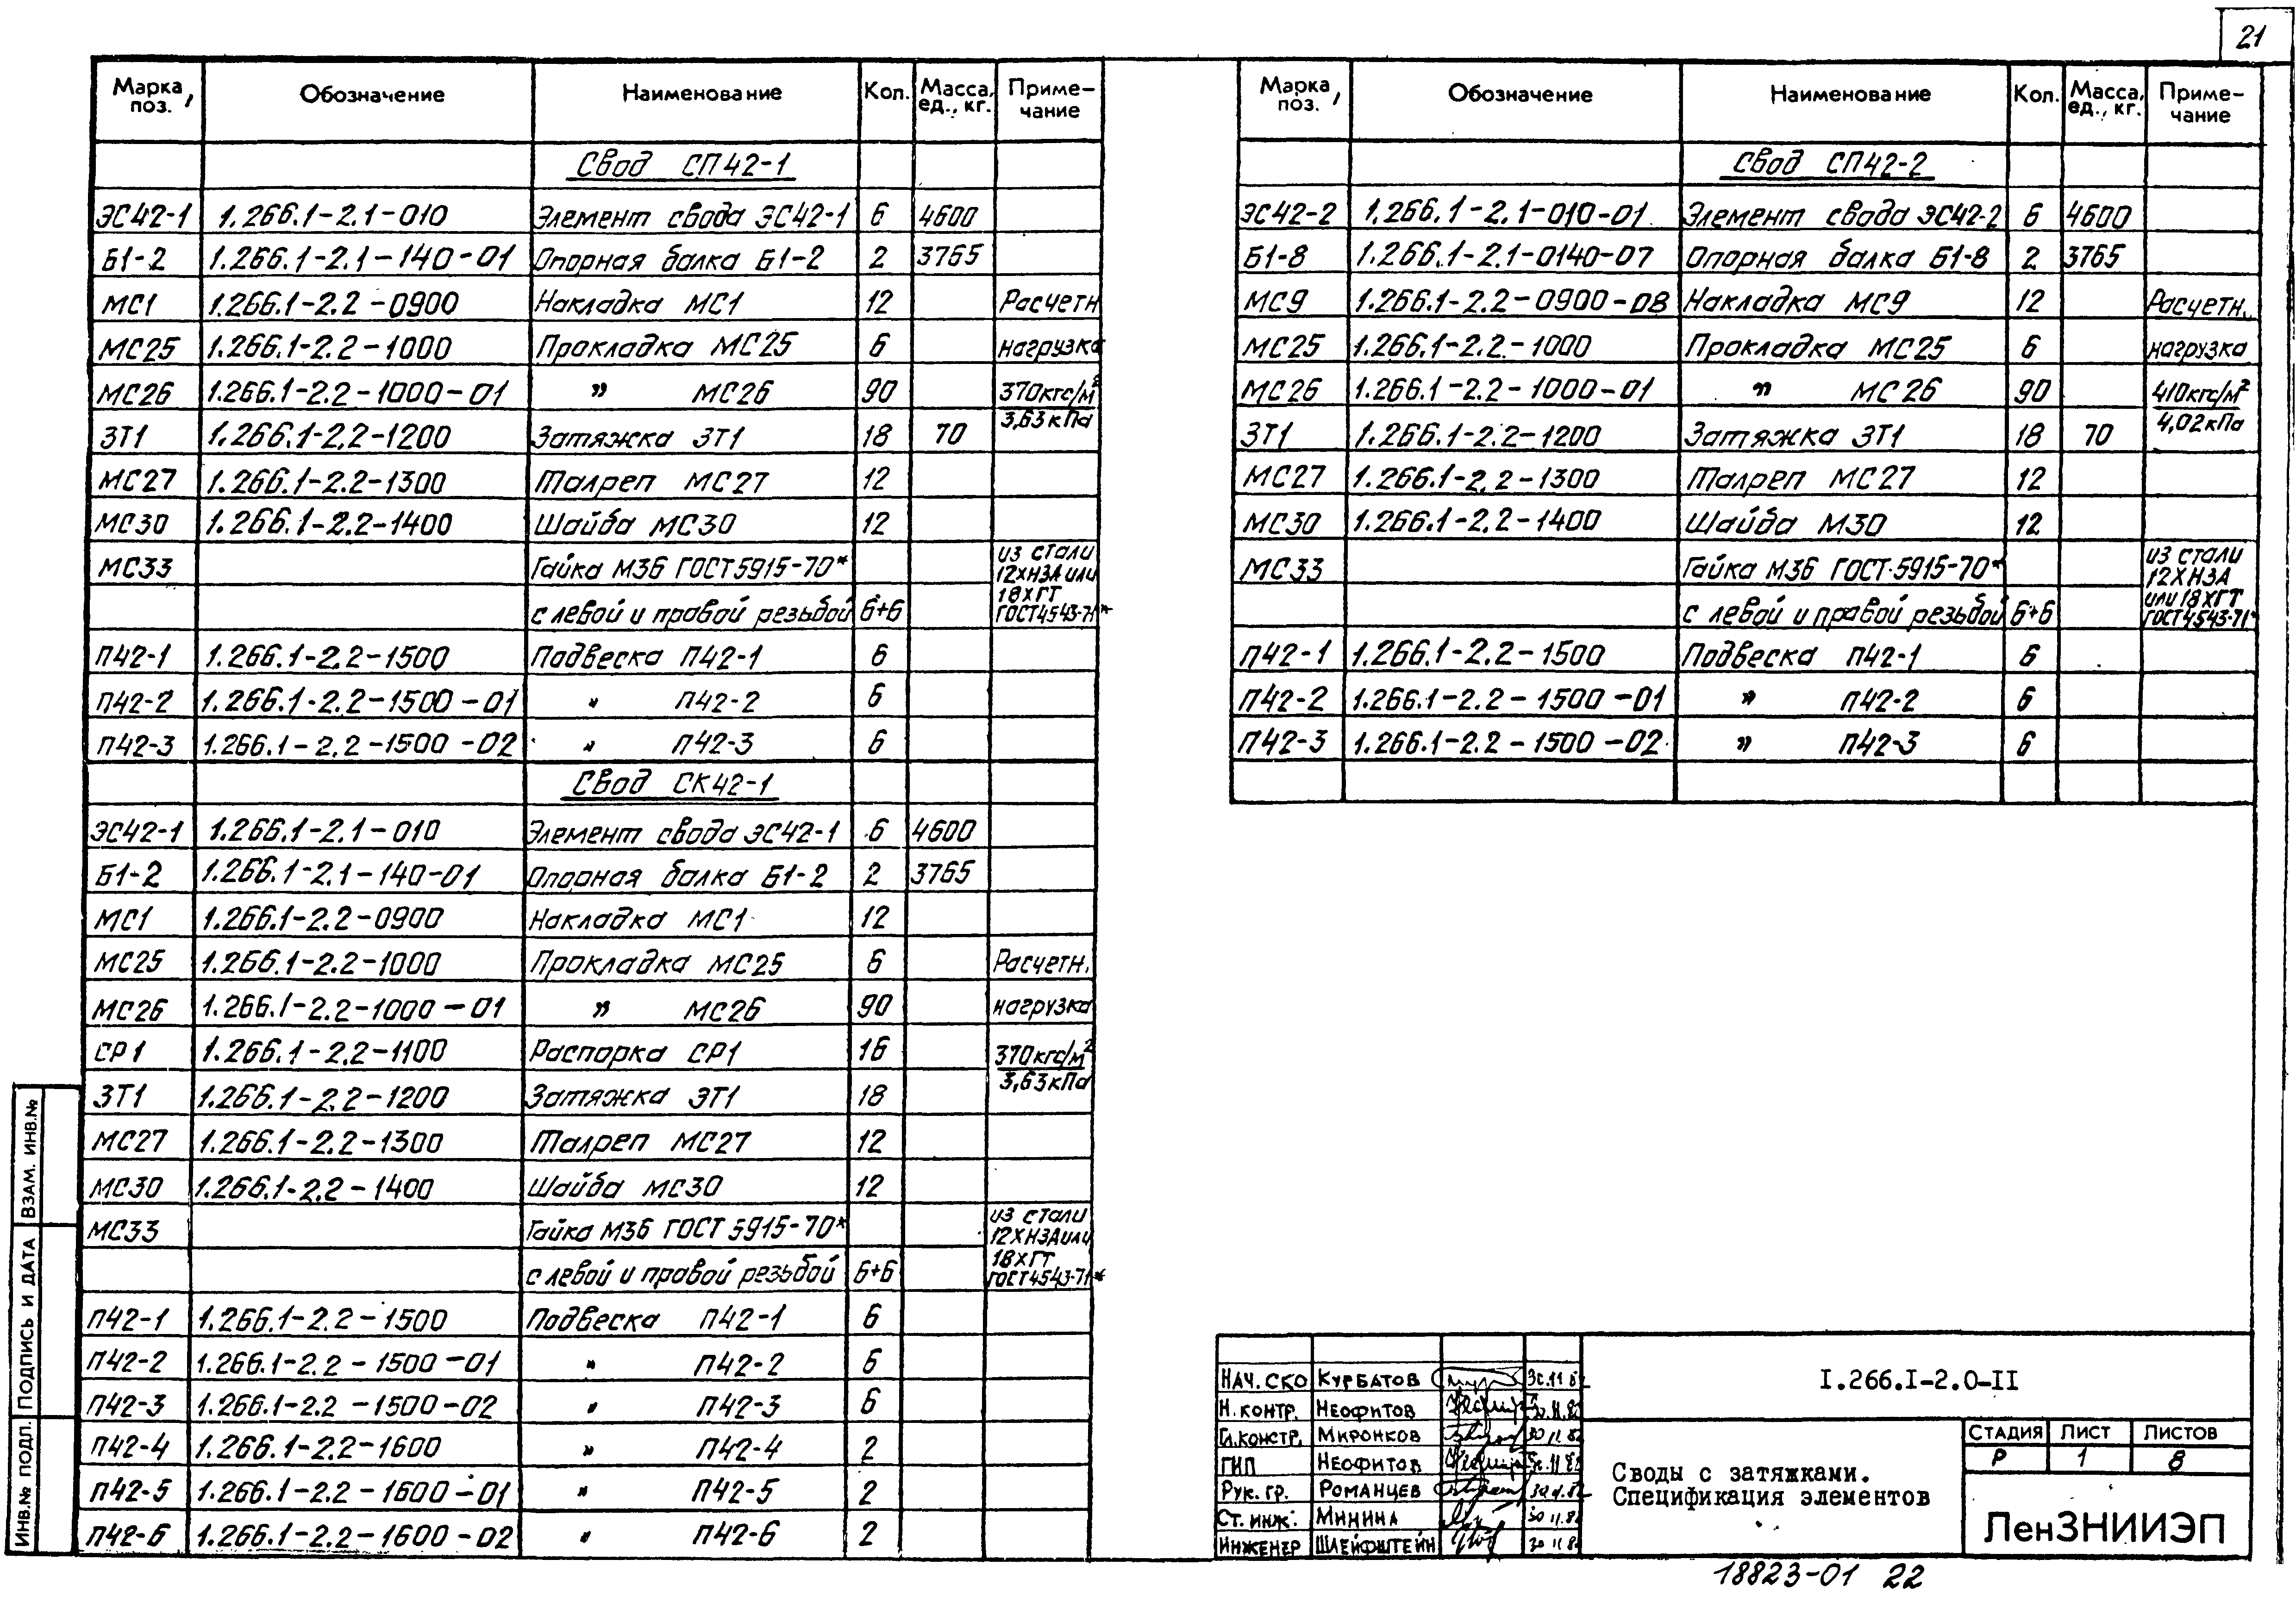 21
Марка, поз. Обозначение Наименование Кол. Масса, ед., кг. Приме-чание
Свод СП42-1
ЭС42-1 1.266.1-2.1-010 Элемент свода ЭС42-1 6 4600
Б1-2 1.266.1-2.1-140-01 Опорная балка Б1-2 2 3765
МС1 1.266.1-2.2-0900 Накладка МС1 12 Расчетн
МС25 1.266.1-2.2-1000 Прокладка МС25 6 нагрузка
МС26 1.266.1-2.2-1000-01 " МС26 90 370кгс/м²
3,63кПа
ЗТ1 1.266.1-2.2-1200 Затяжка ЗТ1 18 70
МС27 1.266.1-2.2-1300 Талреп МС27 12
МС30 1.266.1-2.2-1400 Шайба МС30 12
МС33 Гайка М36 ГОСТ5915-70* из стали 12ХН3А или
с левой и правой резьбой 6+6 18ХГТ ГОСТ4543-71*
П42-1 1.266.1-2.2-1500 Подвеска П42-1 6
П42-2 1.266.1-2.2-1500-01 " П42-2 6
П42-3 1.266.1-2.2-1500-02 " П42-3 6
Свод СК42-1
ЭС42-1 1.266.1-2.1-010 Элемент свода ЭС42-1 6 4600
Б1-2 1.266.1-2.1-140-01 Опорная балка Б1-2 2 3765
МС1 1.266.1-2.2-0900 Накладка МС1 12
МС25 1.266.1-2.2-1000 Прокладка МС25 6 Расчетн.
МС26 1.266.1-2.2-1000-01 " МС26 90 нагрузка
СР1 1.266.1-2.2-1100 Распорка СР1 16 370кгс/м²
3,63кПа
ЗТ1 1.266.1-2.2-1200 Затяжка ЗТ1 18
МС27 1.266.1-2.2-1300 Талреп МС27 12
МС30 1.266.1-2.2-1400 Шайба МС30 12
МС33 Гайка М36 ГОСТ 5915-70* из стали 12ХН3А или
с левой и правой резьбой 6+6 18ХГТ ГОСТ4543-71*
П42-1 1.266.1-2.2-1500 Подвеска П42-1 6
П42-2 1.266.1-2.2-1500-01 " П42-2 6
П42-3 1.266.1-2.2-1500-02 " П42-3 6
П42-4 1.266.1-2.2-1600 " П42-4 2
П42-5 1.266.1-2.2-1600-01 " П42-5 2
П42-6 1.266.1-2.2-1600-02 " П42-6 2
Марка, поз. Обозначение Наименование Кол. Масса, ед., кг. Приме-чание
Свод СП42-2
ЭС42-2 1.266.1-2.1-010-01 Элемент свода ЭС42-2 6 4600
Б1-8 1.266.1-2.1-0140-07 Опорная балка Б1-8 2 3765
МС9 1.266.1-2.2-0900-08 Накладка МС9 12 Расчетн.
МС25 1.266.1-2.2-1000 Прокладка МС25 6 нагрузка
МС26 1.266.1-2.2-1000-01 " МС26 90 410кгс/м²
4,02кПа
ЗТ1 1.266.1-2.2-1200 Затяжка ЗТ1 18 70
МС27 1.266.1-2.2-1300 Талреп МС27 12
МС30 1.266.1-2.2-1400 Шайба М30 12
МС33 Гайка М36 ГОСТ 5915-70* из стали 12ХН3А
с левой и правой резьбой 6+6 или 18ХГТ ГОСТ4543-71*
П42-1 1.266.1-2.2-1500 Подвеска П42-1 6
П42-2 1.266.1-2.2-1500-01 " П42-2 6
П42-3 1.266.1-2.2-1500-02 " П42-3 6
ИНВ.№ ПОДЛ. ПОДПИСЬ И ДАТА ВЗАМ. ИНВ.№
НАЧ. СКО КУРБАТОВ 30.11.82
Н. КОНТР. НЕОФИТОВ
ГЛ.КОНСТР. МИРОНКОВ 30 11.82
ГИП НЕОФИТОВ
РУК. ГР. РОМАНЦЕВ
СТ. ИНЖ. МИНИНА 30 11.82
ИНЖЕНЕР ШЛЕЙФШТЕЙН 30 11 82
I.266.I-2.0-II
Своды с затяжками.
Спецификация элементов
СТАДИЯ ЛИСТ ЛИСТОВ
Р 1 8
ЛенЗНИИЭП
18823-01 22